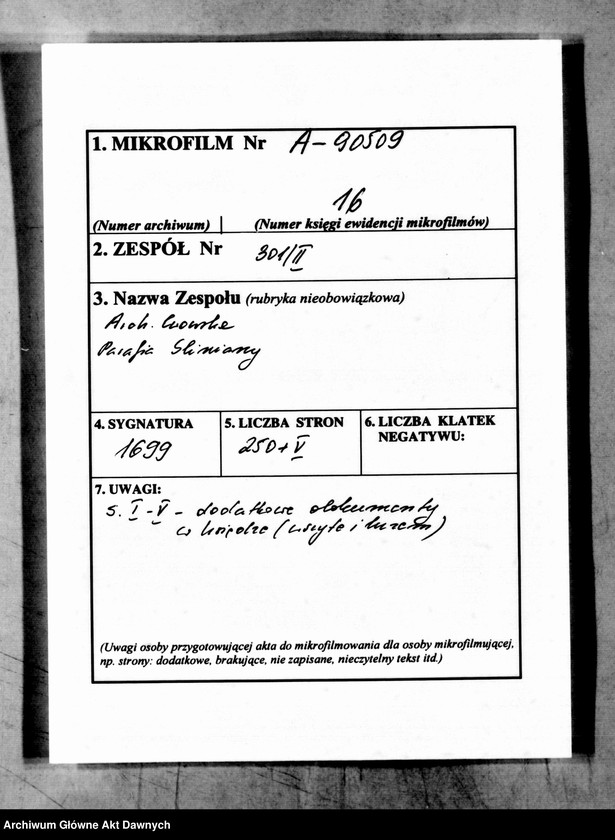 1. MIKROFILM Nr A-90509
16
(Numer archiwum) (Numer księgi ewidencji mikrofilmów)
2. ZESPÓŁ Nr 301/II
3. Nazwa Zespołu (rubryka nieobowiązkowa)
Arch. Lwowska
Parafia Gliniany
4. SYGNATURA
1699
5. LICZBA STRON
250+V
6. LICZBA KLATEK
NEGATYWU:
7. UWAGI:
s. I-V - dodatkowe dokumenty
w księdze (wszyte i luzem)
(Uwagi osoby przygotowującej akta do mikrofilmowania dla osoby mikrofilmującej,
np. strony: dodatkowe, brakujące, nie zapisane, nieczytelny tekst itd.)
Archiwum Główne Akt Dawnych